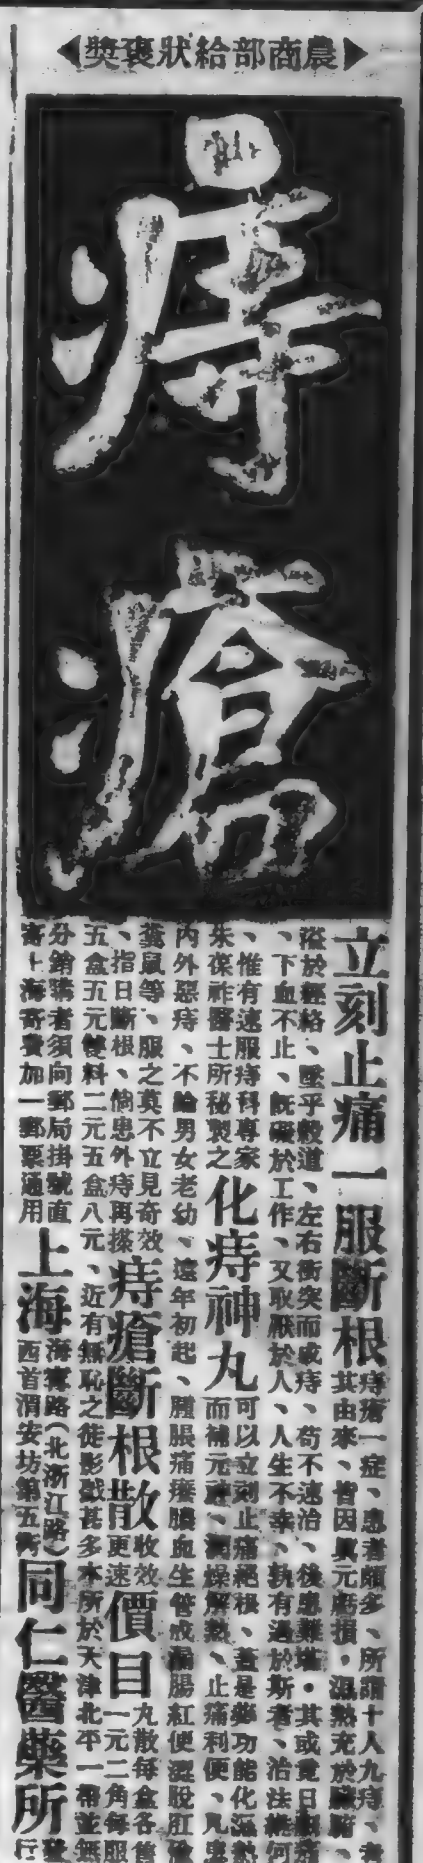 農商部給狀褒獎
痔瘡
立刻止痛一服斷根
痔瘡一症、患者頗多、所謂十人九痔、
其由來、皆因真元虧損、濕熱充於臟腑、
溢於經絡、墜乎穀道、左右衝突而成痔、苟不速治、後患難堪・其或竟日
、下血不止、既礙於工作、又取厭於人、人生不幸、孰有過於斯者、治法
、惟有速服痔科專家
朱葆祚醫士所秘製之
化痔神丸
可以立刻止痛絕根、蓋是藥功能化濕熱
而補元 潤燥解熱、止痛利便、凡
內外惡痔、不論男女老幼、遠年初起、腫脹痛癢膿血生管成漏腸紅便 脫肛
糞鼠等、服之莫不立見奇效
、指日斷根、倘患外痔再搽
痔瘡斷根散
收效
更速
價目
丸散每盒各售
一元二角每服
五盒五元雙料二元五盒八元、近有無恥之徒影戤甚多本所於天津北平一帶並無
分銷購者須向郵局掛號直
寄上海寄費加一郵票通用
上海
海寧路(北浙江路)
西首渭安坊第五衖
同仁醫藥所
發
行